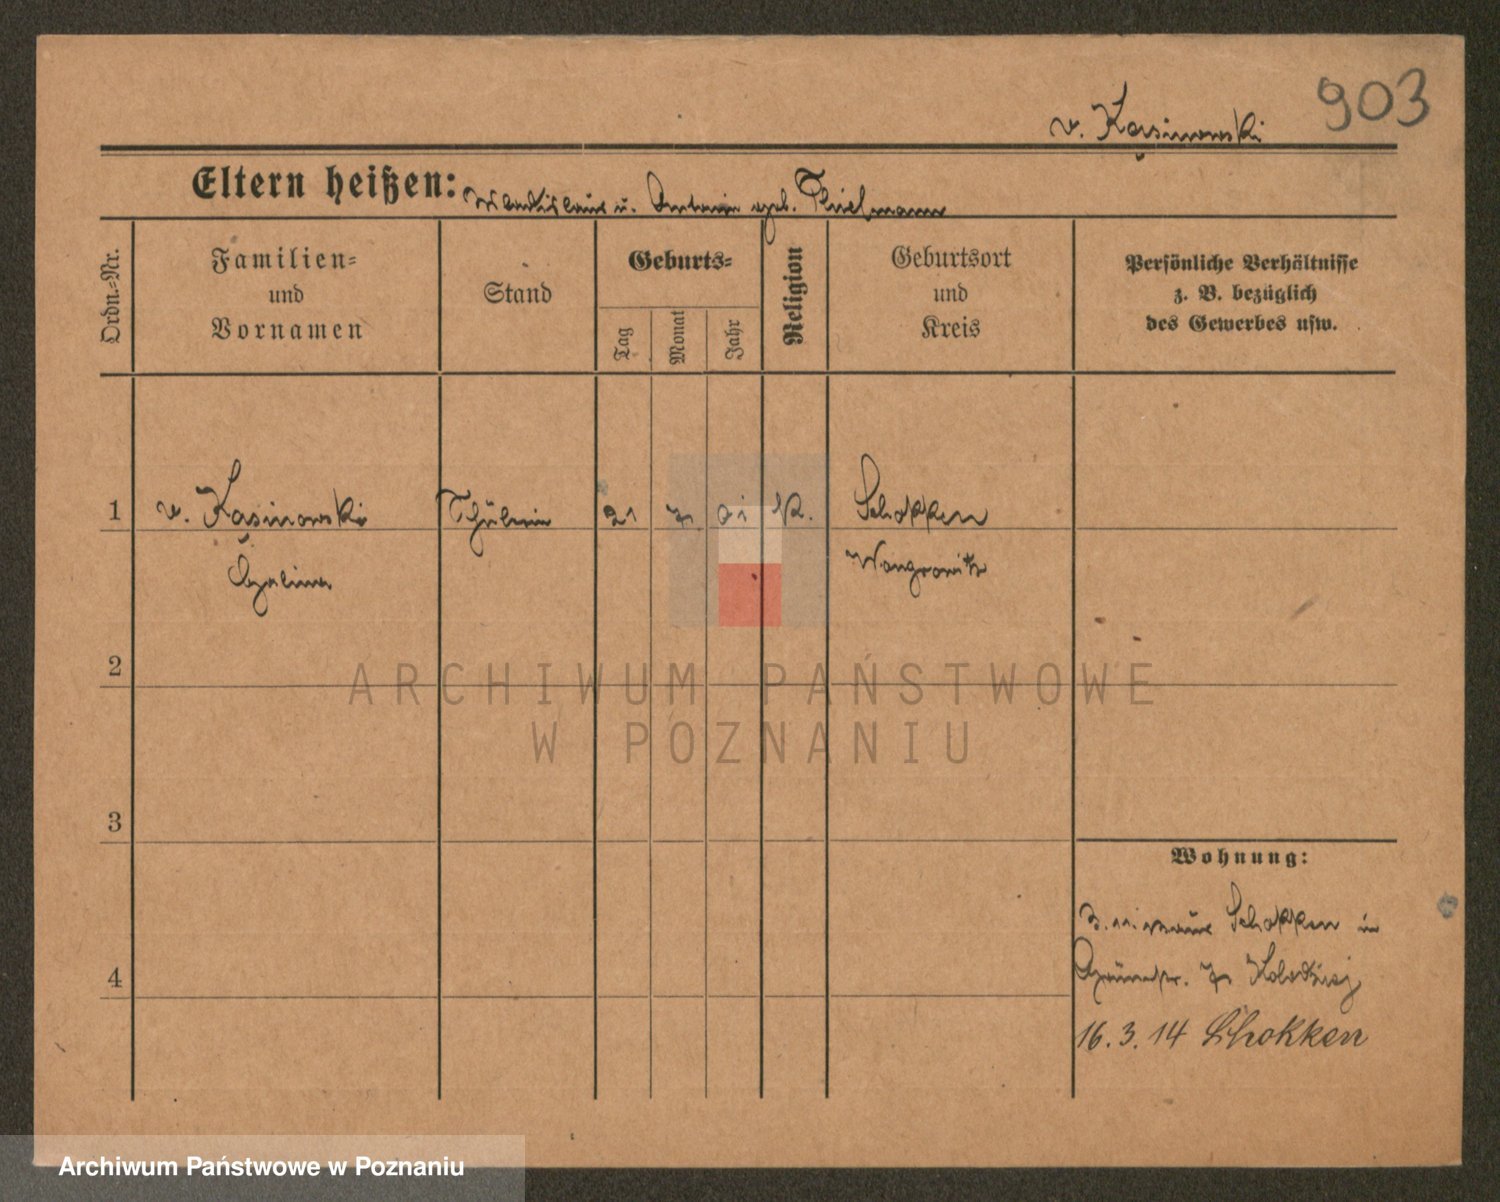 903
v. Kasinowski
Eltern heißen: Wladislaus u. Antonie geb. Thielmann
Ordn.-Nr.
Familien-
und
Vornamen
Stand
Geburts-
Tag
Monat
Jahr
Religion
Geburtsort
und
Kreis
Persönliche Verhältnisse
z. B. bezüglich
des Gewerbes usw.
1
v. Kasinowski
Schülerin
21 7. 01 K.
Schokken
Wongrowitz
2
3
4
Wohnung:
Schokken in
7
16.3.14 Schokken
ARCHIWUM PAŃSTWOWE
W POZNANIU
Archiwum Państwowe w Poznaniu